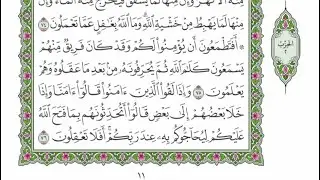 مِنْهَا لَمَا يَهْبِطُ مِنْ خَشْيَةِ ٱللَّهِ وَمَا ٱللَّهُ بِغَٰفِلٍ عَمَّا تَعْمَلُونَ ٧٤
۞ أَفَتَطْمَعُونَ أَن يُؤْمِنُوا۟ لَكُمْ وَقَدْ كَانَ فَرِيقٌ مِّنْهُمْ
يَسْمَعُونَ كَلَٰمَ ٱللَّهِ ثُمَّ يُحَرِّفُونَهُۥ مِنۢ بَعْدِ مَا عَقَلُوهُ وَهُمْ
يَعْلَمُونَ ٧٥ وَإِذَا لَقُوا۟ ٱلَّذِينَ ءَامَنُوا۟ قَالُوٓا۟ ءَامَنَّا وَإِذَا
خَلَا بَعْضُهُمْ إِلَىٰ بَعْضٍ قَالُوٓا۟ أَتُحَدِّثُونَهُم بِمَا فَتَحَ ٱللَّهُ
عَلَيْكُمْ لِيُحَآجُّوكُم بِهِۦ عِندَ رَبِّكُمْ أَفَلَا تَعْقِلُونَ ٧٦
١١